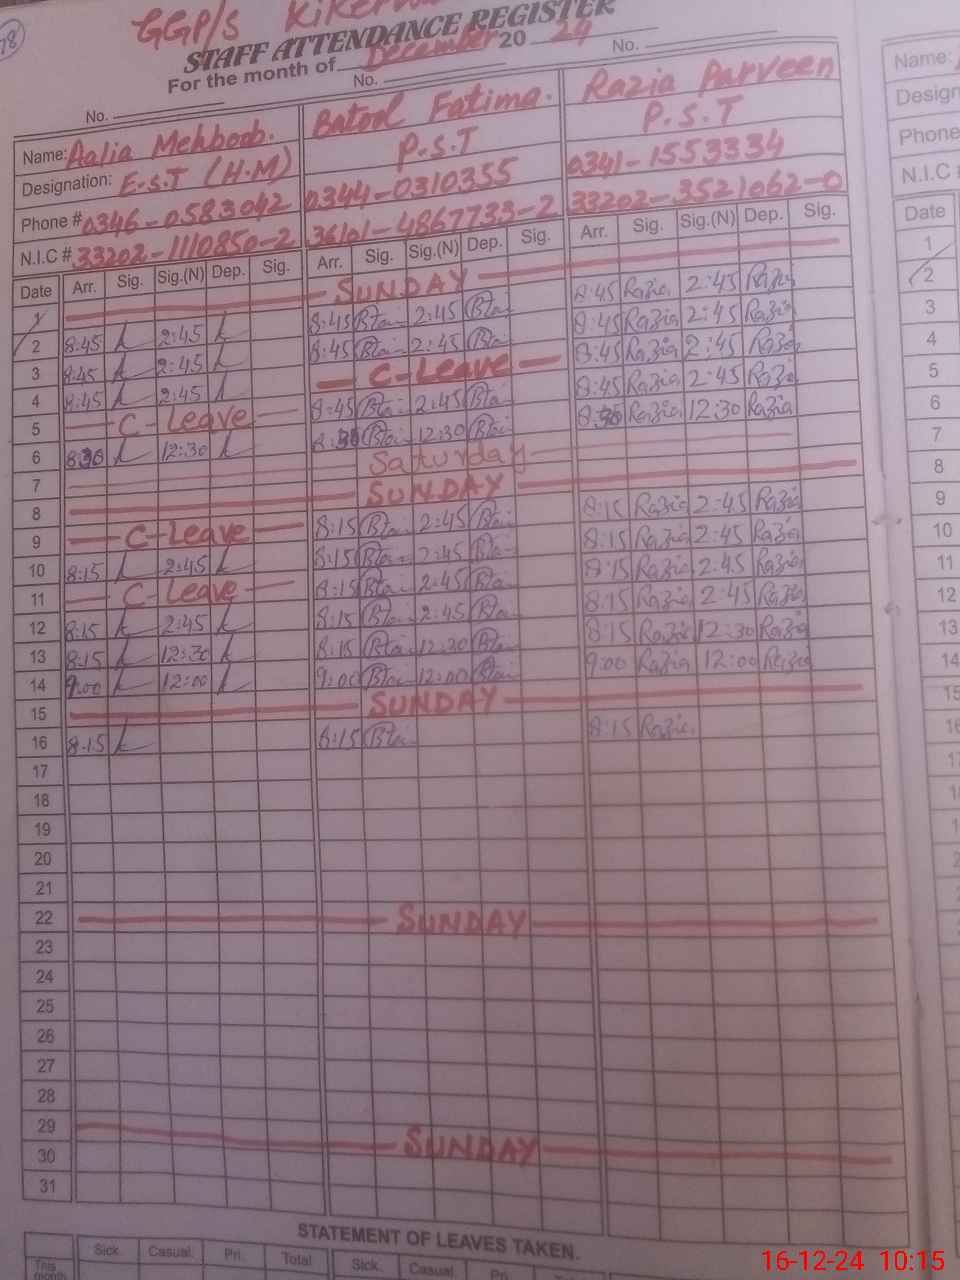 78
GGP/S
STAFF ATTENDANCE REGISTER
For the month of December 20 24
No. No. No.
Name: Aalia Mehboob. Batool Fatima. Razia Parveen
Designation: E.S.T (H.M) P.S.T P.S.T
Phone # 0346-0583042 0344-0310355 0341-1553334
N.I.C # 33202-1110850-2 36101-4867733-2 33202-3521062-0
Date Arr. Sig. Sig.(N) Dep. Sig. Arr. Sig. Sig.(N) Dep. Sig. Arr. Sig. Sig.(N) Dep. Sig.
1 SUNDAY
2 8:45 2:45 8:45 2:45 8:45 Razia 2:45 Razia
3 8:45 2:45 8:45 2:45 8:45 Razia 2:45 Razia
4 8:45 2:45 C-Leave 8:45 Razia 2:45 Razia
5 C-Leave 8:45 2:45 8:45 Razia 2:45 Razia
6 8:30 12:30 8:30 12:30 8:30 Razia 12:30 Razia
7 Saturday
8 SUNDAY
9 C-Leave 8:15 2:45 8:15 Razia 2:45 Razia
10 8:15 2:45 8:15 2:45 8:15 Razia 2:45 Razia
11 C-Leave 8:15 2:45 8:15 Razia 2:45 Razia
12 8:15 2:45 8:15 2:45 8:15 Razia 2:45 Razia
13 8:15 12:30 8:15 12:30 8:15 Razia 12:30 Razia
14 9:00 12:00 9:00 12:00 9:00 Razia 12:00 Razia
15 SUNDAY
16 8:15 8:15 8:15 Razia
17
18
19
20
21
22 SUNDAY
23
24
25
26
27
28
29 SUNDAY
30
31
STATEMENT OF LEAVES TAKEN.
Sick. Casual. Pri. Total Sick. Casual. Pri.
This month
Name:
Phone
N.I.C #
Date
1
2
3
4
5
6
7
8
9
10
11
12
13
14
15
16
16-12-24 10:15